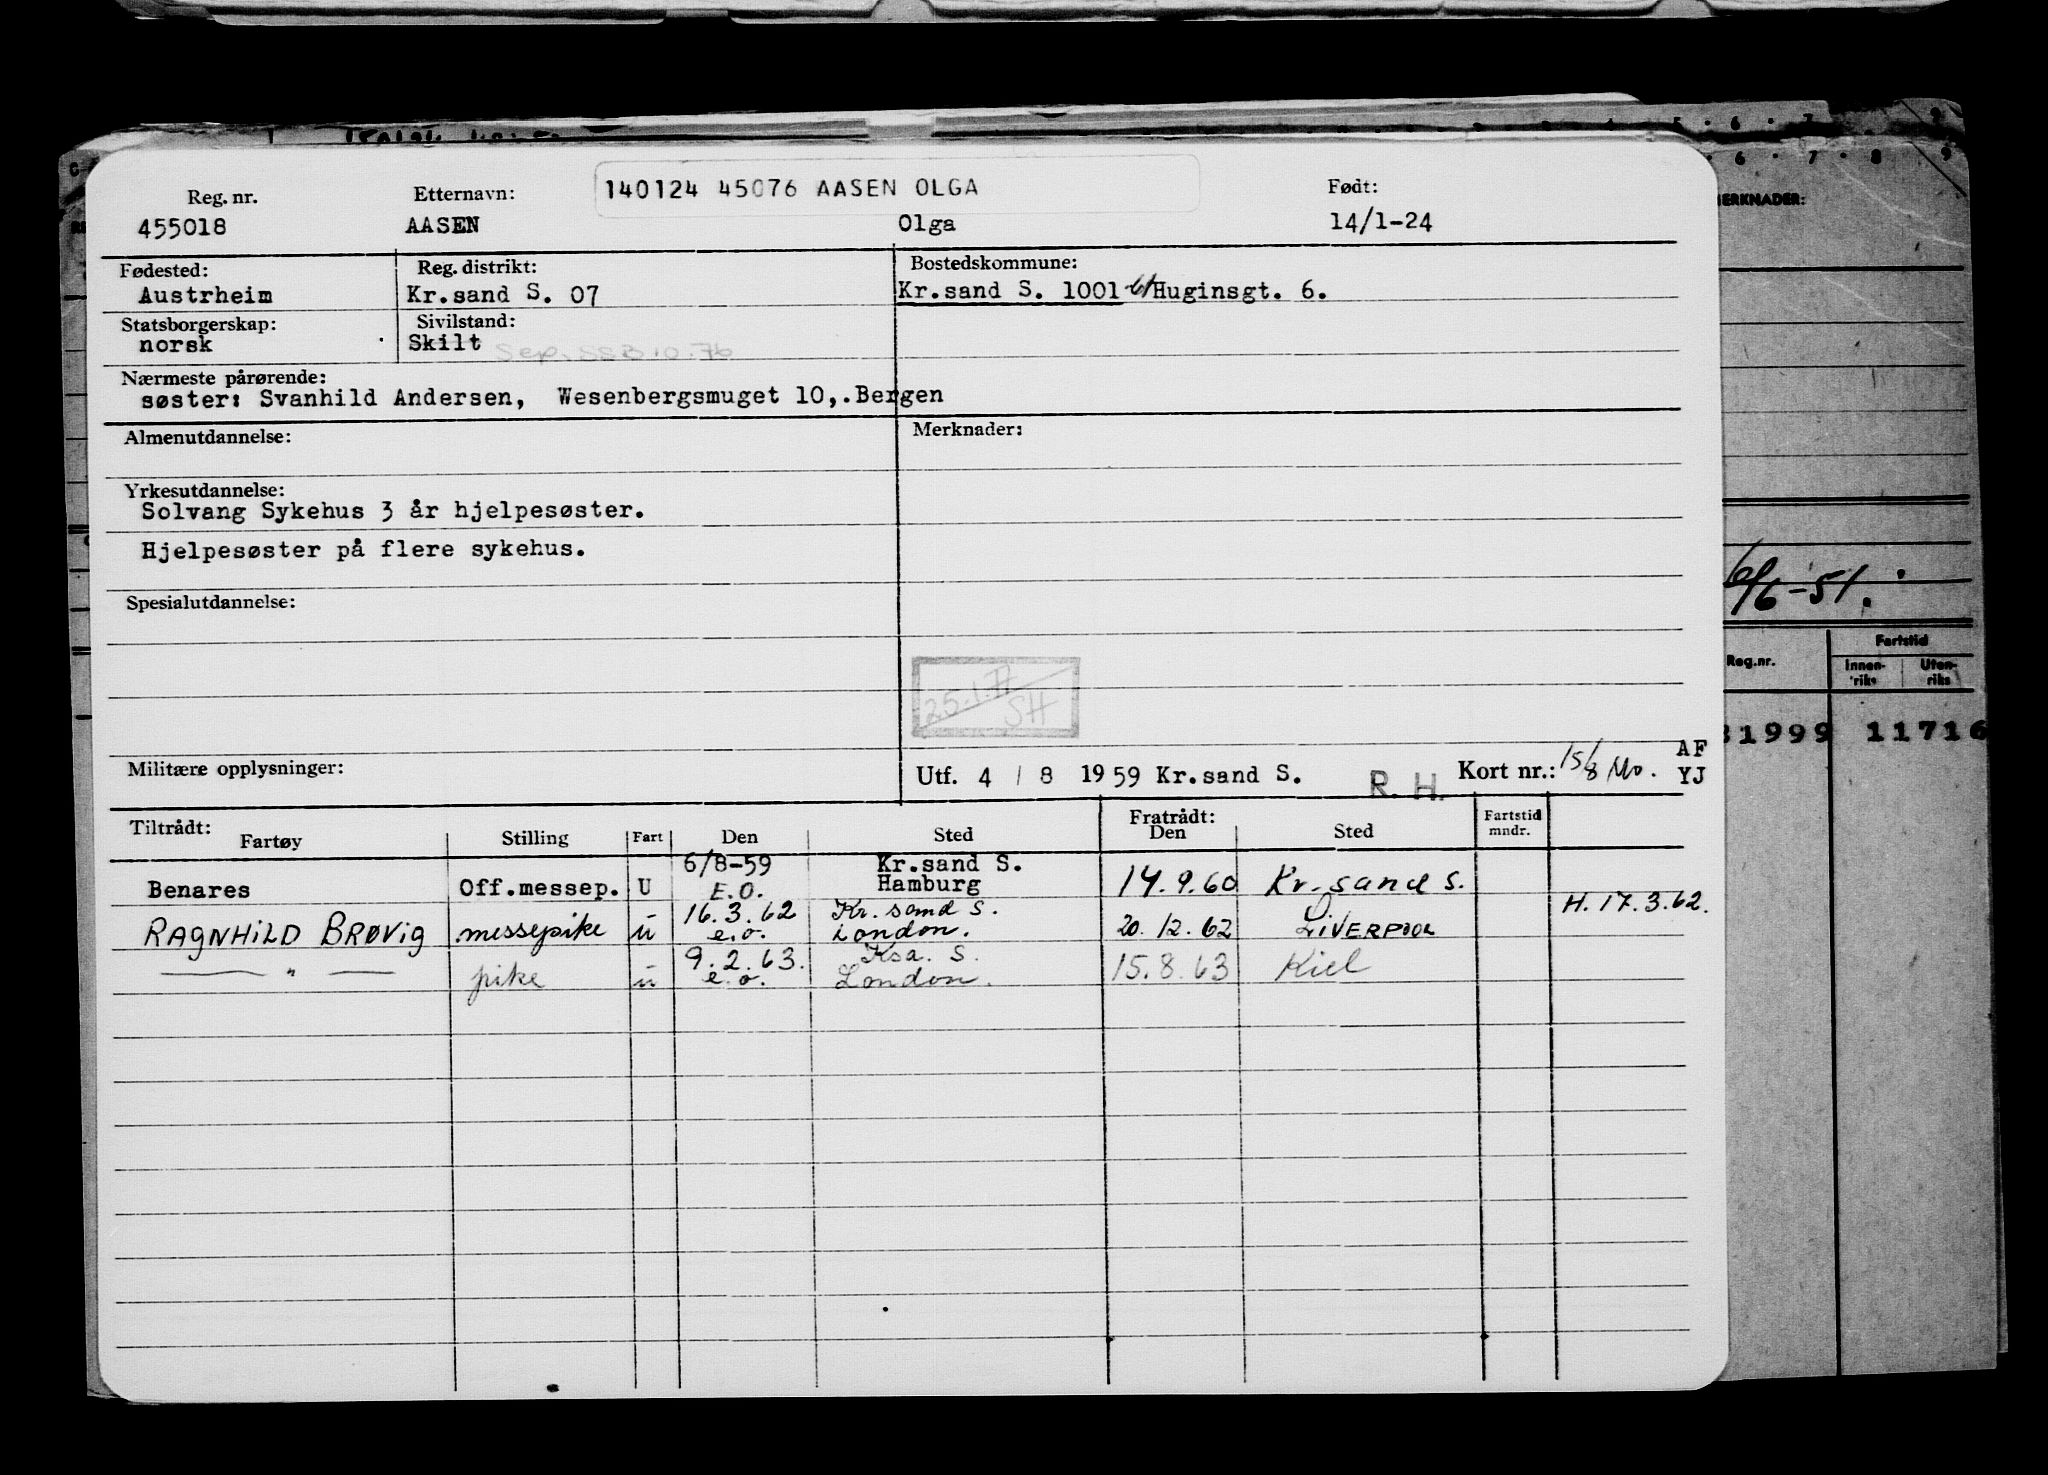 140124 45076 AASEN OLGA
Reg. nr. Etternavn: Født:
455018 AASEN Olga 14/1-24
Fødested: Reg. distrikt: Bostedskommune:
Austrheim Kr.sand S. 07 Kr.sand S. 1001 Huginsgt. 6.
Statsborgerskap: Sivilstand:
norsk Skilt Sep. SSB 10.76
Nærmeste pårørende:
søster: Svanhild Andersen, Wesenbergsmuget 10,.Bergen
Almenutdannelse: Merknader:
Yrkesutdannelse:
Solvang Sykehus 3 år hjelpesøster.
Hjelpesøster på flere sykehus.
Spesialutdannelse:
25.1.77
SH
Militære opplysninger: Utf. 4 / 8 1959 Kr.sand S. R. H. Kort nr.: 15/8 Mo. AF
YJ
Tiltrådt: Fratrådt: Fartstid
Fartøy Stilling Fart Den Sted Den Sted mndr.
6/8-59 Kr.sand S.
Benares Off.messep. U E.O. Hamburg 14.9.60 Kr.sand S.
16.3.62 Kr. sand S. H. 17.3.62.
RAGNHILD BRØVIG messepike u e.o. London. 20.12.62 LIVERPOOL
9.2.63. Ksa. S.
— " — pike u e.o. London. 15.8.63 Kiel
MERKNADER:
6/6-51.
Reg.nr. Fartstid
Innen-
riks Uten-
riks
31999 11716